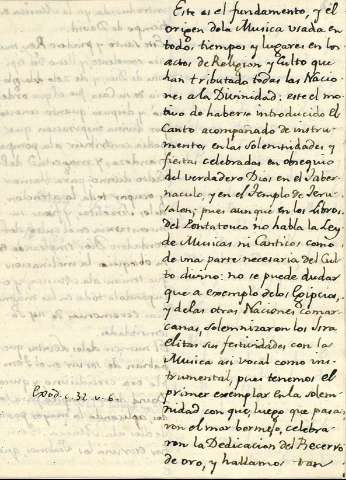 Este es el fundamento, y el
origen de la Musica usada en
todos tiempos y lugares en los
actos de Religion y Culto que
han tributado todas las Nacio-
nes a la Divinidad; este el mo-
tivo de haberse introducido el
Canto acompañado de instru-
mentos en las solemnidades y
fiestas celebradas en obsequio
del verdadero Dios en el Taber-
naculo, y en el Templo de Jeru-
salen; pues aunque en los Libros
del Pentateuco no habla la Ley
de Musicas ni Canticos como
de una parte necesaria del Cul-
to divino: no se puede dudar
que a exemplo de los Egipcios,
y de las otras Naciones comar-
canas, solemnizaron los Isra
elitas sus festividades con la
Musica asi vocal como ins-
trumental, pues tenemos el
primer exemplar en la solem-
nidad con que, luego que pasa-
ron el mar bermejo, celebra-
Exod. c. 32. v. 6.
ron la Dedicacion del Becerro
de oro, y hallamos tan